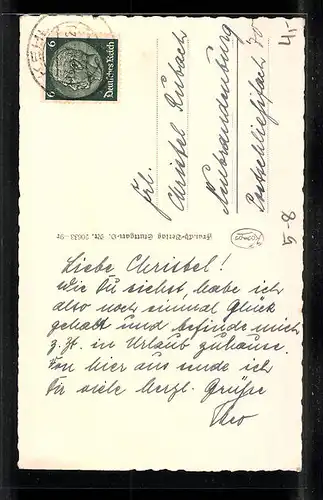 KEHL
6 Deutsches Reich 6
Frl.
Christel Rubach
Neubrandenburg
Postschließfach 70
4,-
5-8
Franckh-Verlag Stuttgart-O. Nr. 20653-9r
Liebe Christel!
Wie Du siehst, habe ich
also noch einmal Glück
gehabt und befinde mich
z. Zt. in Urlaub zuhause.
Von hier aus sende ich
Dir viele herzl. Grüße
Theo